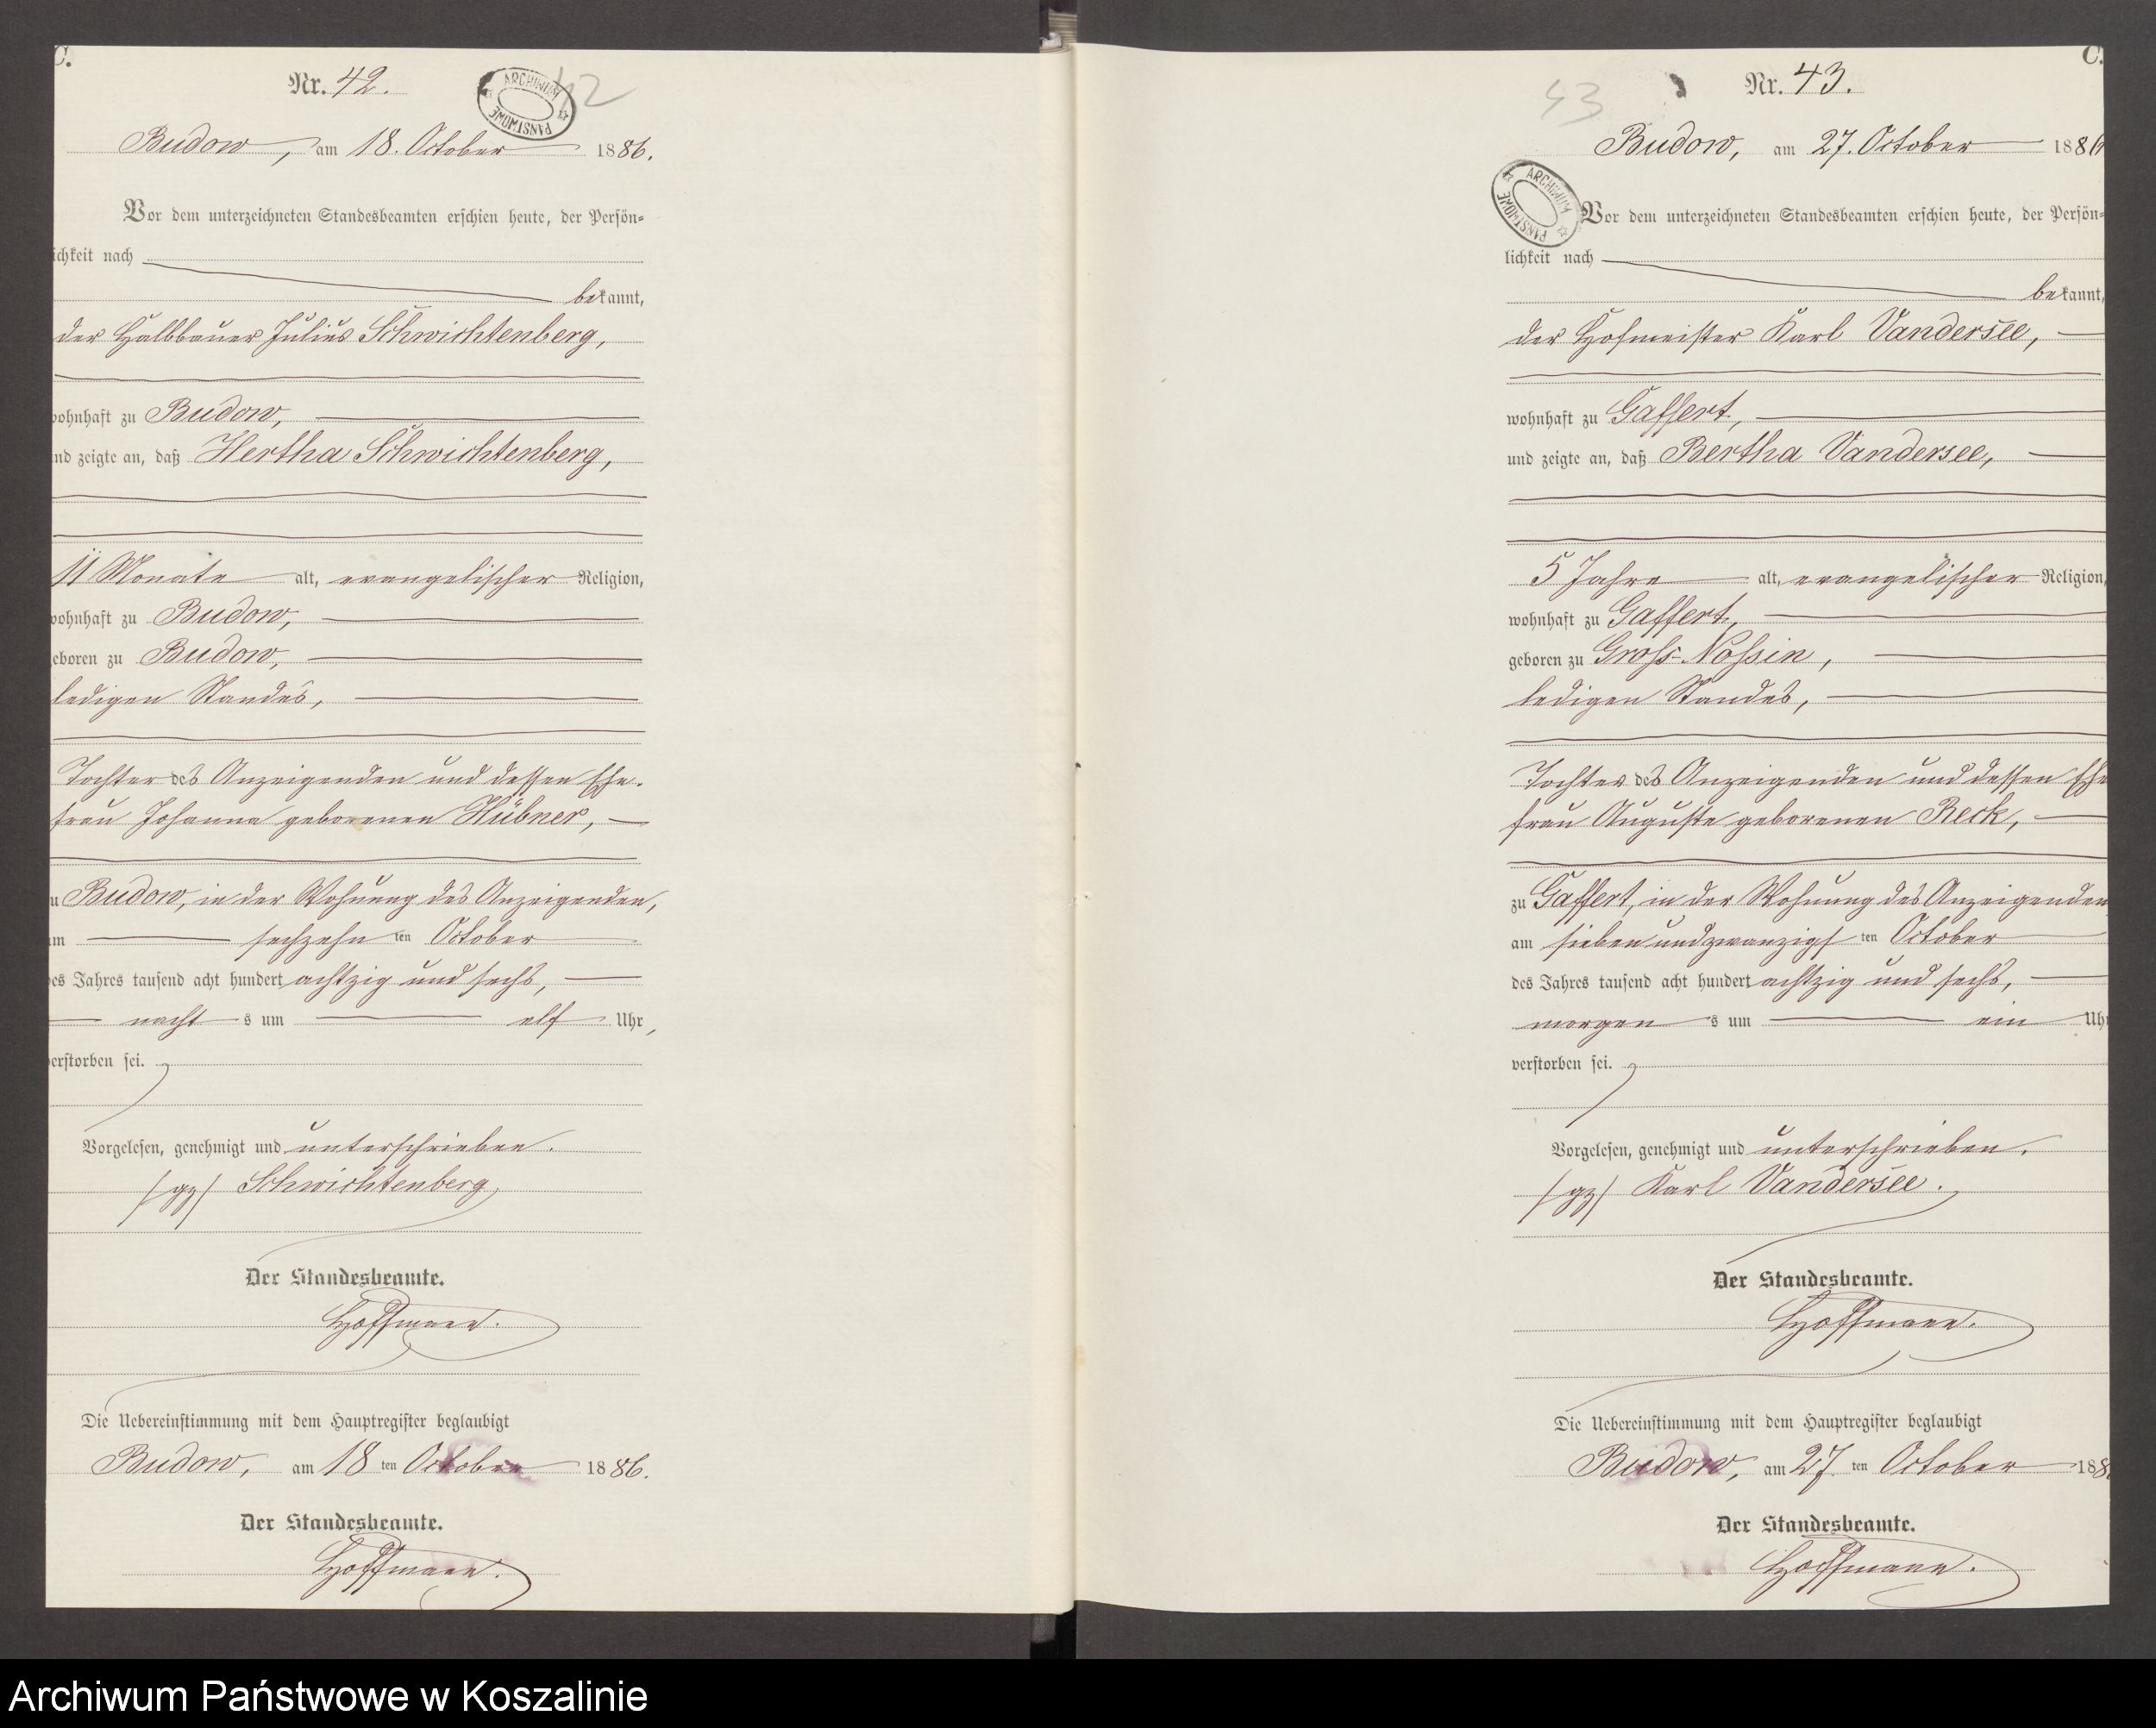 C.
Nr. 42.
ARCHIWUM PAŃSTWOWE
42
Budow, am 18. October 1886.
Vor dem unterzeichneten Standesbeamten erschien heute, der Persön-
ichkeit nach
bekannt,
der Halbbauer Julius Schwichtenberg,
wohnhaft zu Budow,
nd zeigte an, daß Hertha Schwichtenberg,
11 Monate alt, evangelischer Religion,
wohnhaft zu Budow,
eboren zu Budow,
ledigen Standes,
Tochter des Anzeigenden und dessen Ehe-
frau Johanna geborenen Hübner,
u Budow, in der Wohnung des Anzeigenden,
am sechzehn ten October
des Jahres tausend acht hundert achtzig und sechs,
nacht s um elf Uhr,
verstorben sei.
Vorgelesen, genehmigt und unterschrieben.
/gz/ Schwichtenberg
Der Standesbeamte.
Hoffmann.
Die Uebereinstimmung mit dem Hauptregister beglaubigt
Budow, am 18 ten October 1886.
Der Standesbeamte.
Hoffmann.
C.
43
Nr. 43.
Budow, am 27. October 1886
ARCHIWUM PAŃSTWOWE
Vor dem unterzeichneten Standesbeamten erschien heute, der Persön-
lichkeit nach
bekannt,
der Hofmeister Karl Vandersee,
wohnhaft zu Gaffert,
und zeigte an, daß Bertha Vandersee,
5 Jahre alt, evangelischer Religion,
wohnhaft zu Gaffert,
geboren zu Gross-Nossin,
ledigen Standes,
Tochter des Anzeigenden und dessen Ehe
frau Auguste geborenen Reck,
zu Gaffert, in der Wohnung des Anzeigenden
am siebenundzwanzigs ten October
des Jahres tausend acht hundert achtzig und sechs,
morgen s um ein Uhr
verstorben sei.
Vorgelesen, genehmigt und unterschrieben.
/gz/ Karl Vandersee.
Der Standesbeamte.
Hoffmann.
Die Uebereinstimmung mit dem Hauptregister beglaubigt
Budow, am 27. ten October 188
Der Standesbeamte.
Hoffmann.
Archiwum Państwowe w Koszalinie